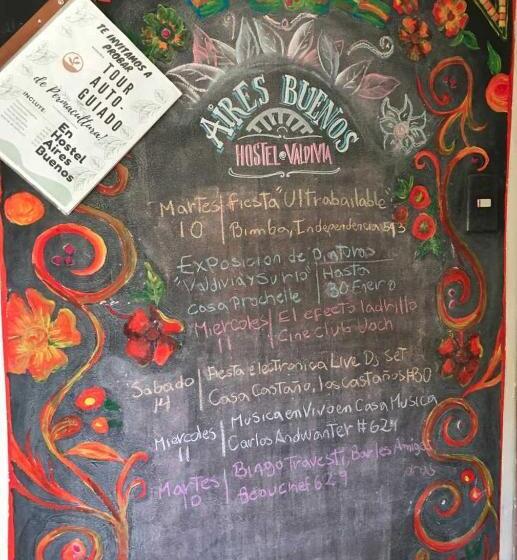 TE INVITAMOS A
PROBAR
TOUR
AUTO-
GUIADO
de Permacultura!
INCLUYE:
En
Hostel
Aires
Buenos
AIRES BUENOS
HOSTEL VALDIVIA
Martes fiesta "Ultrabailable"
10 Bimba, Independencia 593
Exposicion de pinturas
"Valdivia y su rio" Hasta
casa prochelle 30 Enero
Miercoles El efecto ladrillo
11 Cine Club Uach
Sabado Fiesta electronica Live Dj set
14 Casa Castaño, los castaños #30
Miercoles Musica en Vivo en Casa Musica
11 Carlos Andwanter #624
Martes Bingo Travesti, Bar les Amigas
10 Beauchef 629